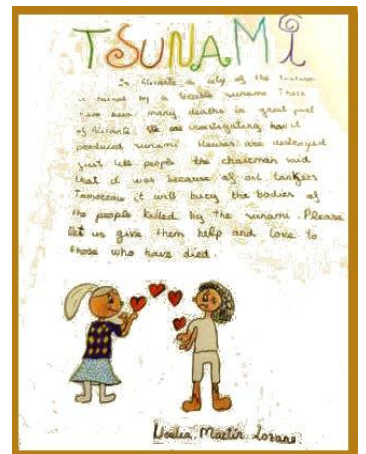 TSUNAMI
In Alicante a city of the
is ruined by a terrible sunami There
have been many deaths in great part
of Alicante We are investigating how it
produced sunami Houses are destroyed
just like people the chairman said
that it was because of oil tankers
Tomorrow it will bury the bodies of
the people killed by the sunami. Please
let us give them help and love to
those who have died.
Noelia Martín Lozano